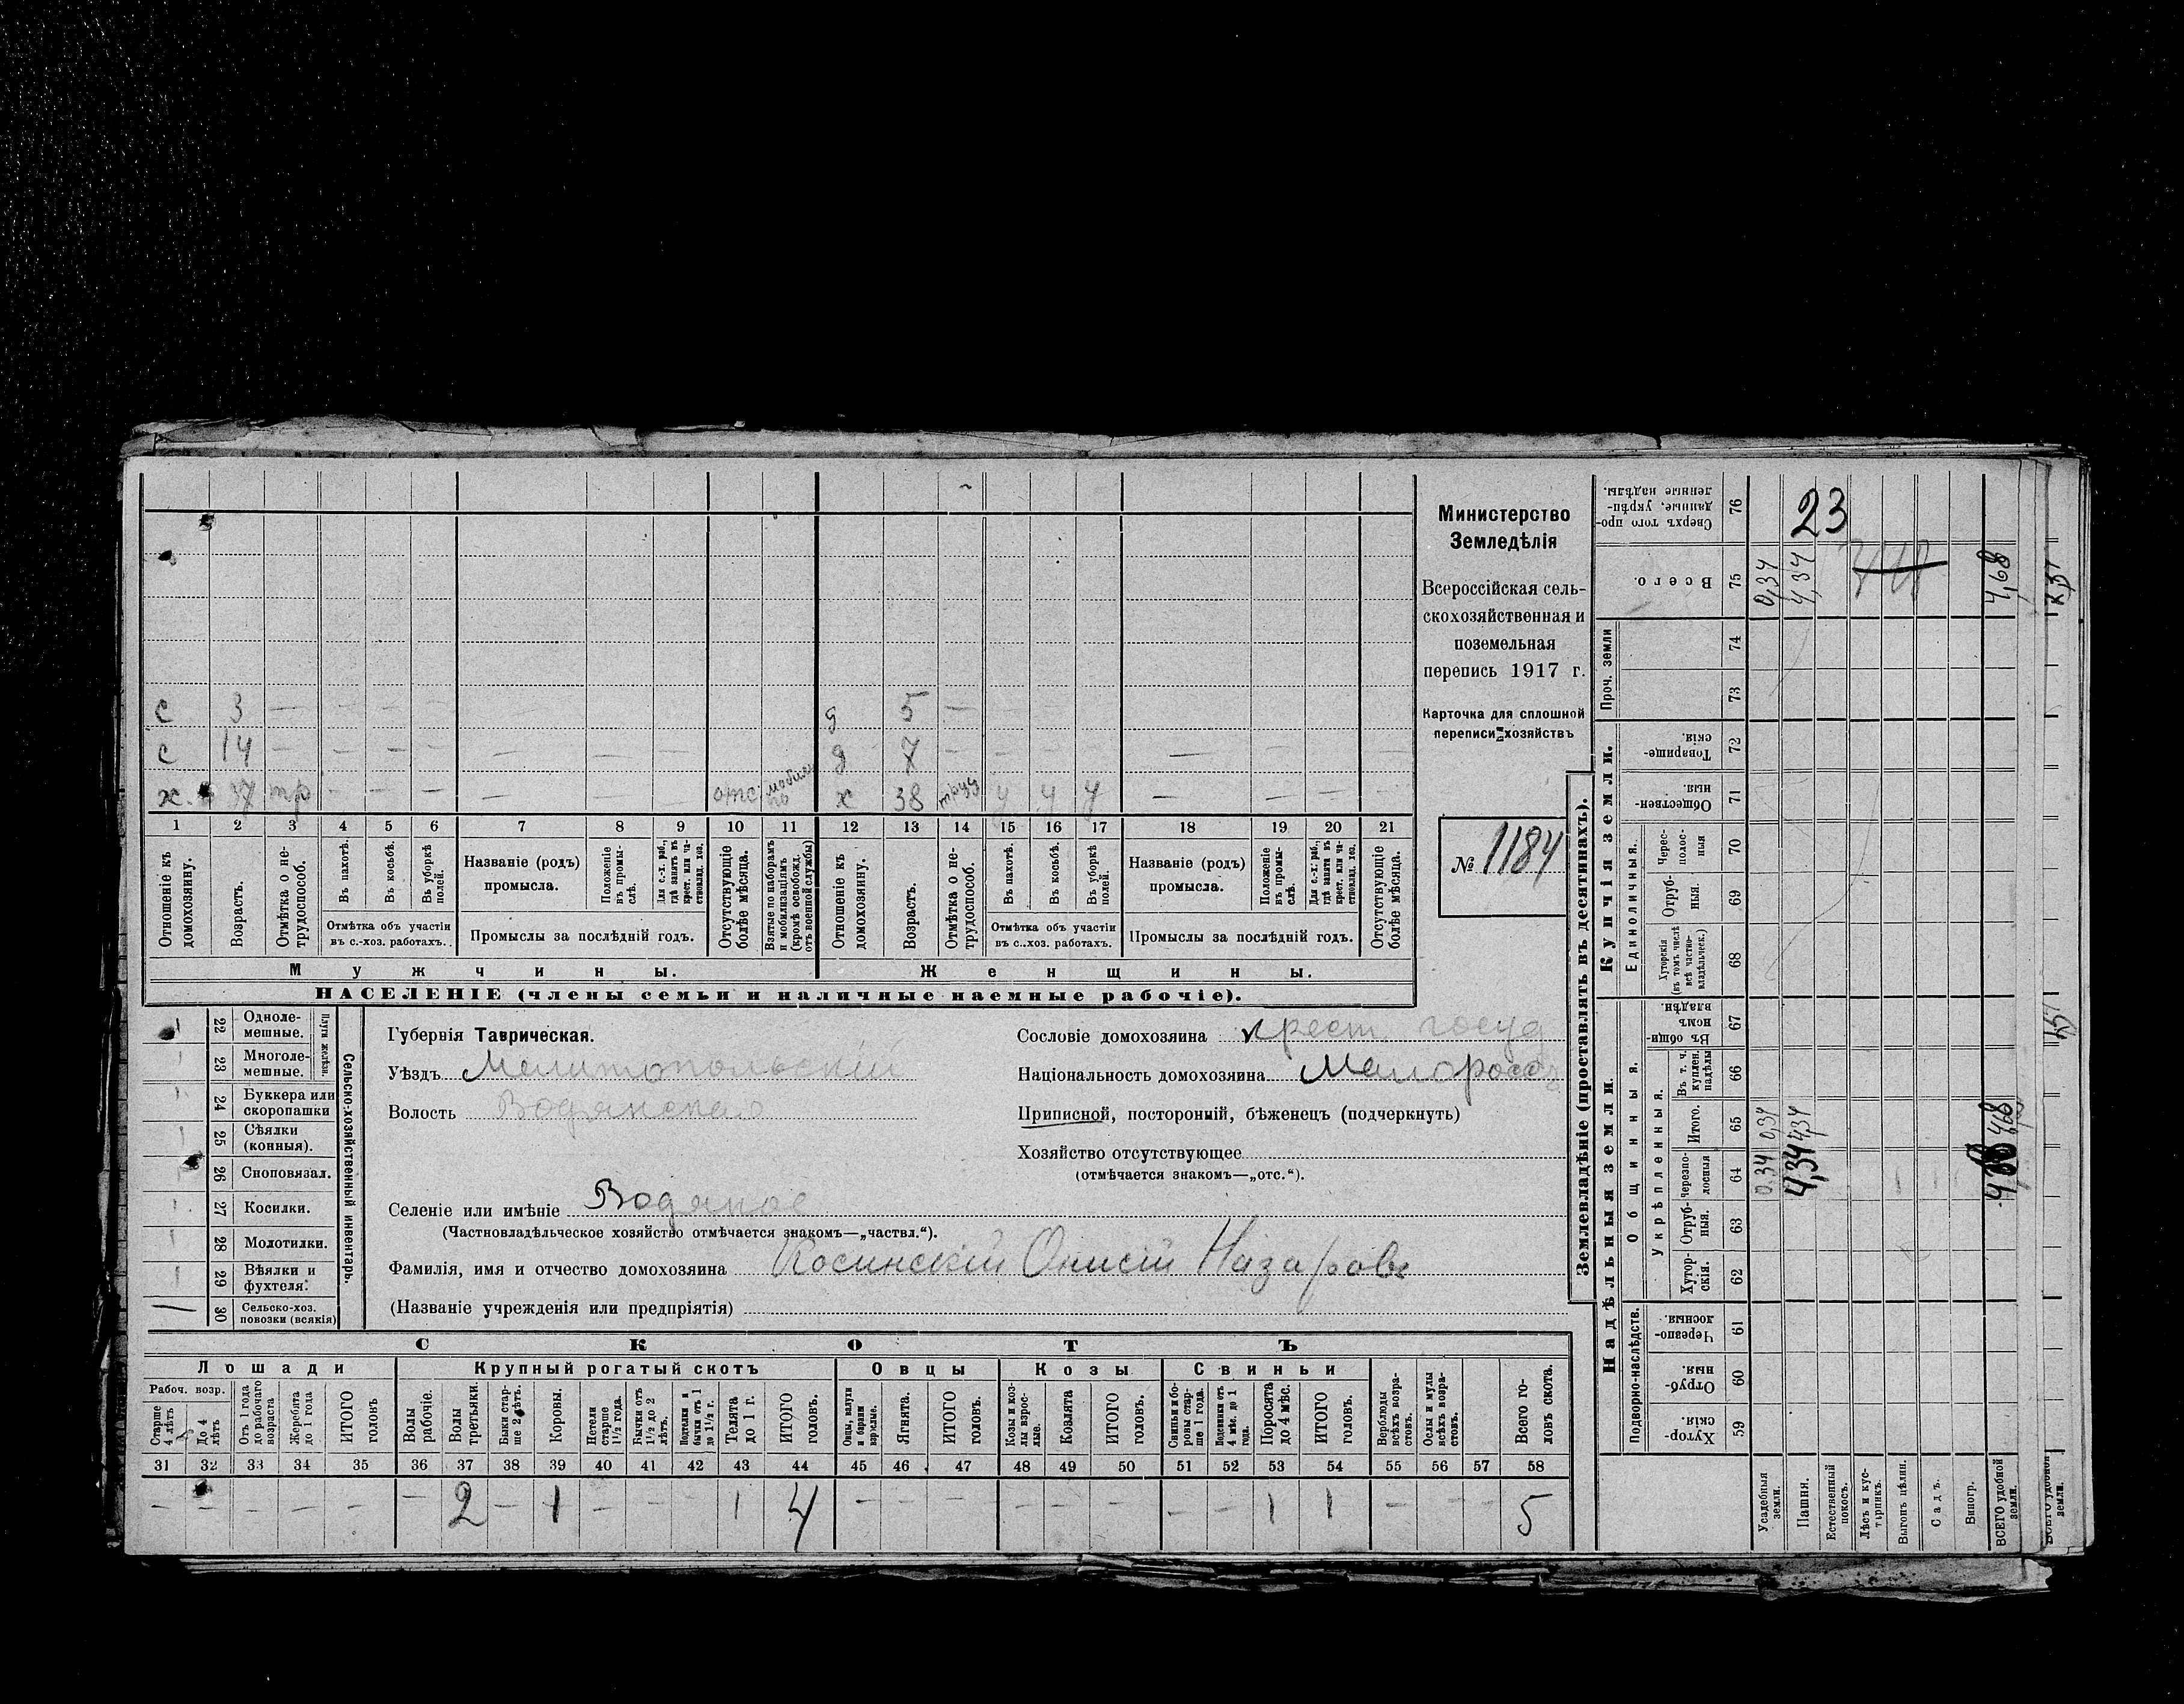 Министерство
Земледѣлія
Всероссійская сель-
скохозяйственная и
поземельная
перепись 1917 г.
Карточка для сплошной
переписи хозяйствъ
№ 1184
с 3 — — — — — — д 5 —
с 14 — — — — — — — д 7 — — — — — — —
х. 37 тр — — — — — — отс. х 38 труд у у у — — — —
1 2 3 4 5 6 7 8 9 10 11 12 13 14 15 16 17 18 19 20 21
Отношеніе къ домохозяину.
Возрастъ.
Отмѣтка о не-трудоспособ.
Въ пахотѣ.
Въ косьбѣ.
Въ уборкѣ полей.
Отмѣтка объ участіи въ с.-хоз. работахъ.
Названіе (родъ) промысла.
Положеніе въ промы-слѣ.
Для с.-х. раб., гдѣ занятъ въ крест. или ча-стновлад. хоз.
Промыслы за послѣдній годъ.
Отсутствующіе болѣе мѣсяца.
Взятые по наборамъ и мобилизаціямъ (кромѣ освобожд. отъ военной службы)
Отношеніе къ домохозяину.
Возрастъ.
Отмѣтка о не-трудоспособ.
Въ пахотѣ.
Въ косьбѣ.
Въ уборкѣ полей.
Отмѣтка объ участіи въ с..хоз. работахъ.
Названіе (родъ) промысла.
Положеніе въ промы-слѣ.
Для с.-х. раб., гдѣ занята въ крест. или ча-стновлад. хоз.
Промыслы за послѣдній годъ.
Отсутствующіе болѣе мѣсяца.
Мужчины. Женщины.
НАСЕЛЕНІЕ (члены семьи и наличные наемные рабочіе).
22 Одноле-мешные.
23 Многоле-мешные.
Плуги желѣзн.
24 Буккера или скоропашки
25 Сѣялки (конныя).
26 Сноповязал.
27 Косилки.
28 Молотилки.
29 Вѣялки и фухтеля.
30 Сельско-хоз. повозки (всякія)
Сельско-хозяйственный инвентарь.
Губернія Таврическая.
Уѣздъ Мелитопольскій
Волость Водянская
Селеніе или имѣніе Водяное
(Частновладѣльческое хозяйство отмѣчается знакомъ—„частвл.“).
Фамилія, имя и отчество домохозяина Косинскій Онисій Назаровъ
(Названіе учрежденія или предпріятія)
Сословіе домохозяина крест. госуд
Національность домохозяина Малороссъ
Приписной, посторонній, бѣженецъ (подчеркнуть)
Хозяйство отсутствующее
(отмѣчается знакомъ—„отс.“).
СКОТЪ
Лошади Крупный рогатый скотъ Овцы Козы Свиньи
Рабоч. возр.
Старше 4 лѣтъ
До 4 лѣтъ
Отъ 1 года до рабочаго возраста
Жеребята до 1 года
ИТОГО головъ
Волы рабочіе.
Волы третьяки.
Быки стар-ше 2 лѣтъ.
Коровы.
Нетели старше 1½ года.
Бычки отъ 1½ до 2 лѣтъ.
Подтелки и бычки отъ 1 до 1½ г.
Телята до 1 г.
ИТОГО головъ.
Овцы, валухи и бараны взрослые.
Ягнята.
ИТОГО головъ.
Козы и коз-лы взрос-лые.
Козлята
ИТОГО головъ.
Свиньи и бо-ровы стар-ше 1 года.
Подсвинки отъ 4 мѣс. до 1 года.
Поросята до 4 мѣс.
ИТОГО головъ.
Верблюды всѣхъ возра-стовъ.
Ослы и мулы всѣхъ возра-стовъ.
Всего го-ловъ скота.
31 32 33 34 35 36 37 38 39 40 41 42 43 44 45 46 47 48 49 50 51 52 53 54 55 56 57 58
— — — — — — 2 — 1 — — — 1 4 — — — — — — — — 1 1 — — — 5
Землевладѣніе (проставлять въ десятинахъ).
Надѣльныя земли. Купчія земли. Проч. земли
Подворно-наслѣдств.
Общинныя.
Укрѣпленныя.
Единоличныя.
Хутор-скія. 59
Отруб-ныя. 60
Черезпо-лосныя. 61
Хутор-скія. 62
Отруб-ныя. 63
Черезпо-лосныя 64
Итого. 65
Въ т. ч. куплен. надѣлы 66
Въ общи-номъ владѣн. 67
Хуторскія (въ томъ числѣ всѣ частно-владѣльческ.) 68
Отруб-ныя. 69
Черес-полос-ныя 70
Обществен-ныя. 71
Товарище-скія. 72
73
74
Всего. 75
Сверхъ того про-данные, укрѣп-ленные надѣлы. 76
Усадебныя земли. 0,34 0,34 0,34
Пашня. 4,34 4,34 4,34 23
Естественный покосъ.
Лѣсъ и кус-тарникъ.
Выгонъ цѣлин.
Садъ.
Виногр.
ВСЕГО удобной земли. 4,68 4,68
ВСЕГО удобной земли.